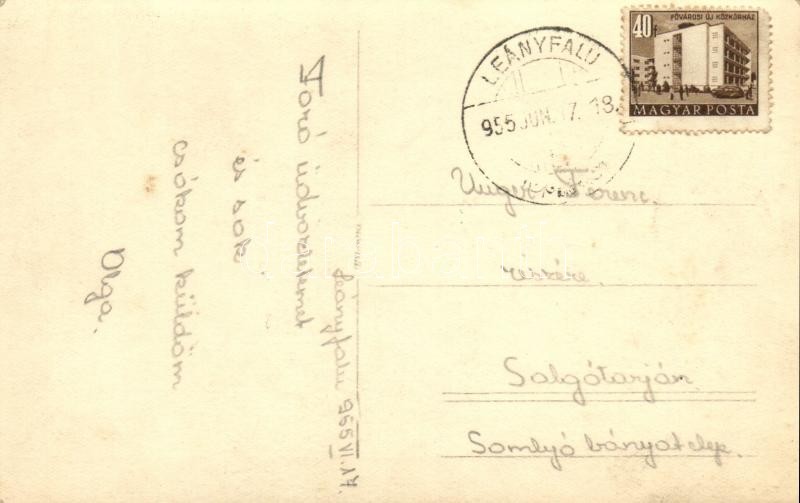 40f
FŐVÁROSI ÚJ KÖZKÓRHÁZ
MAGYAR POSTA
LEÁNYFALU
955 JUN. 17. 18.
Leányfalu 955 VI. 17.
Forró üdvözletemet
és sok
csókom küldöm
Olga.
Unger Ferenc.
részére.
Salgótarján
Somlyó bányatelep.